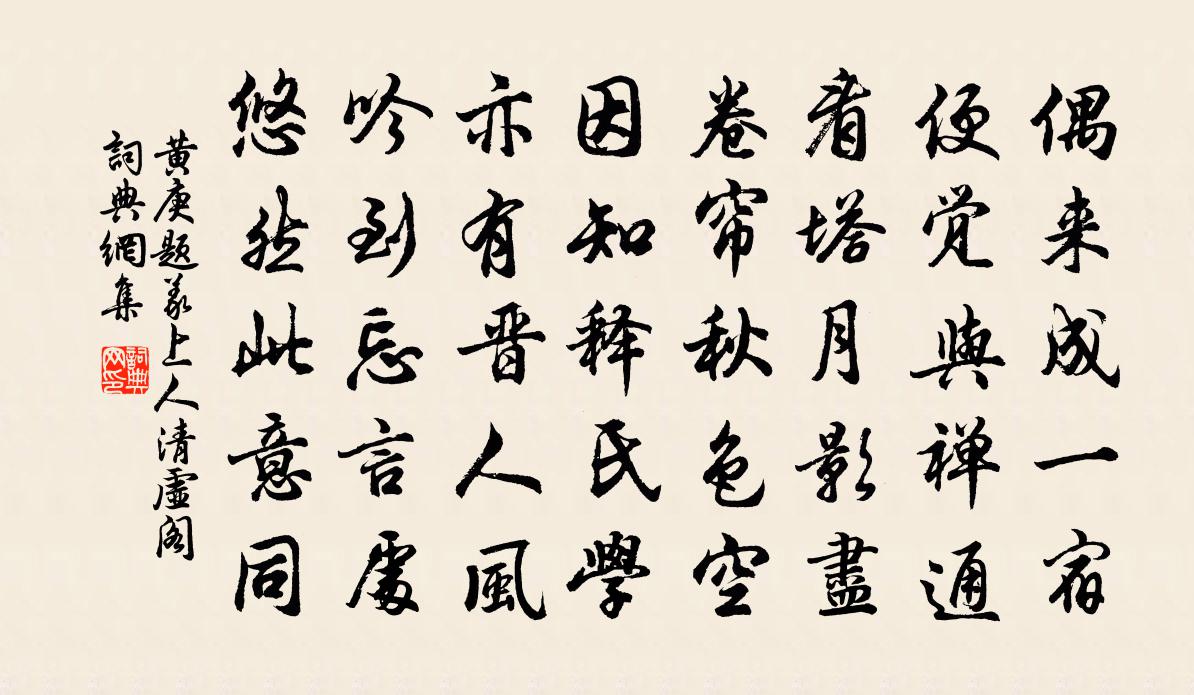 偶来成一宿
便觉與禅通
看塔月影盡
卷帘秋色空
因知释氏學
亦有晋人風
吟到忘言處
悠然此意同
黄庚题义上人清虚阁
詞典網集
詞典网印